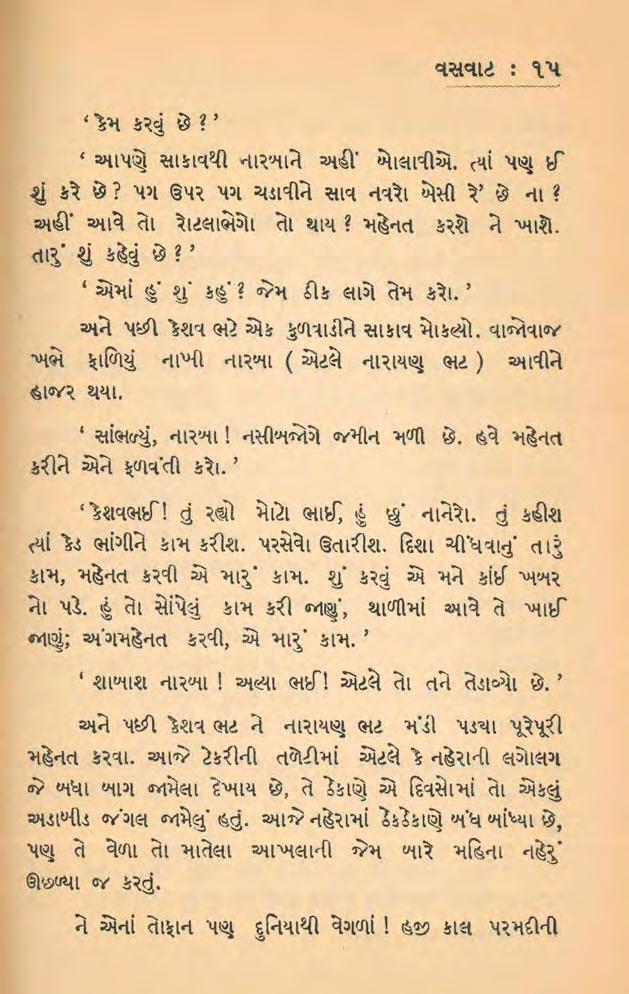 વસવાટ : ૧૫
‘ કેમ કરવું છે ? ’
‘ આપણે સાકાવથી નારબાને અહીં બોલાવીએ. ત્યાં પણ ઈ
શું કરે છે ? પગ ઉપર પગ ચડાવીને સાવ નવરો બેસી રે’ છે ના ?
અહીં આવે તો રોટલાભેગો તો થાય ? મહેનત કરશે ને ખાશે.
તારું શું કહેવું છે ? ’
‘ એમાં હું શું કહું ? જેમ ઠીક લાગે તેમ કરો. ’
અને પછી કેશવ ભટે એક કુળવાડીને સાકાવ મોકલ્યો. વાજોવાજ
ખભે ફાળિયું નાખી નારબા ( એટલે નારાયણ ભટ ) આવીને
હાજર થયા.
‘ સાંભળ્યું, નારબા ! નસીબજોગે જમીન મળી છે. હવે મહેનત
કરીને એને ફળવંતી કરો. ’
‘ કેશવભઈ ! તું રહ્યો મોટો ભાઈ, હું છું નાનેરો. તું કહીશ
ત્યાં કેડ ભાંગીને કામ કરીશ. પરસેવો ઉતારીશ. દિશા ચીંધવાનું તારું
કામ, મહેનત કરવી એ મારું કામ. શું કરવું એ મને કાંઈ ખબર
નો પડે. હું તો સોંપેલું કામ કરી જાણું, થાળીમાં આવે તે ખાઈ
જાણું; અંગમહેનત કરવી, એ મારું કામ. ’
‘ શાબાશ નારબા ! અલ્યા ભઈ ! એટલે તો તને તેડાવ્યો છે. ’
અને પછી કેશવ ભટ ને નારાયણ ભટ મંડી પડ્યા પૂરેપૂરી
મહેનત કરવા. આજે ટેકરીની તળેટીમાં એટલે કે નહેરાની લગોલગ
જે બધા બાગ જામેલા દેખાય છે, તે ઠેકાણે એ દિવસોમાં તો એકલું
અડાબીડ જંગલ જામેલું હતું. આજે નહેરામાં ઠેકઠેકાણે બંધ બાંધ્યા છે,
પણ તે વેળા તો માતેલા આખલાની જેમ બારે મહિના નહેરું
ઊછળ્યા જ કરતું.
ને એનાં તોફાન પણ દુનિયાથી વેગળાં ! હજી કાલ પરમદીની